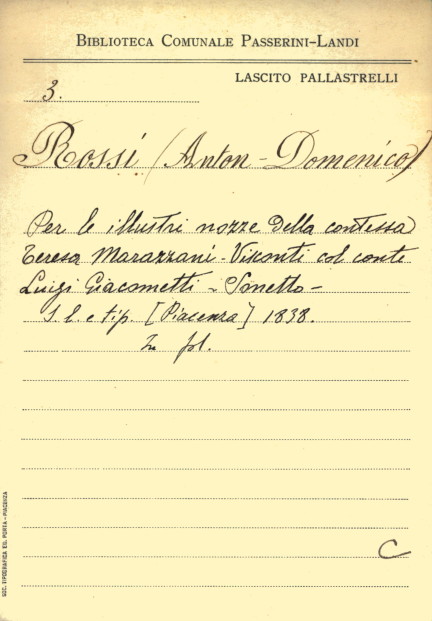 BIBLIOTECA COMUNALE PASSERINI-LANDI
LASCITO PALLASTRELLI
3.
Rossi (Anton-Domenico)
Per le illustri nozze della contessa
Teresa Marazzani-Visconti col conte
Luigi Giacometti - Sonetto -
S. l. e tip. [Piacenza] 1838.
In fol.
C
SOC. TIPOGRAFICA ED. PORTA - PIACENZA